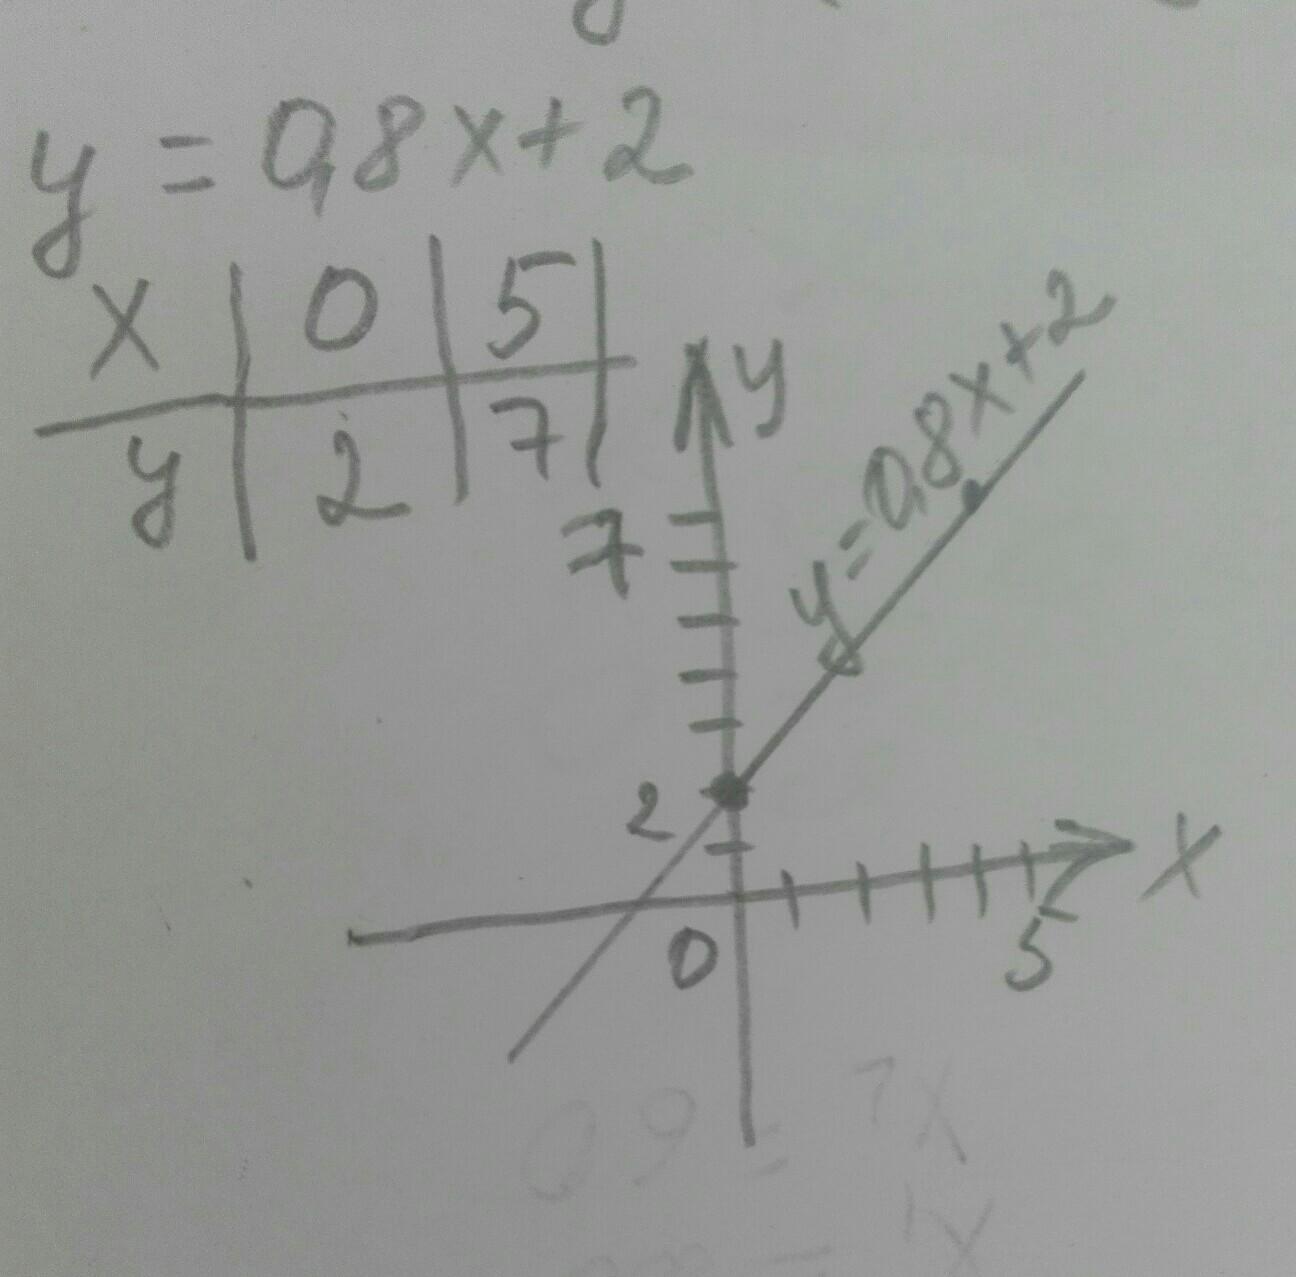 y = 0,8x+2
x | 0 | 5 |
y | 2 | 7 |
y
y=0,8x+2
7
2
x
0
5